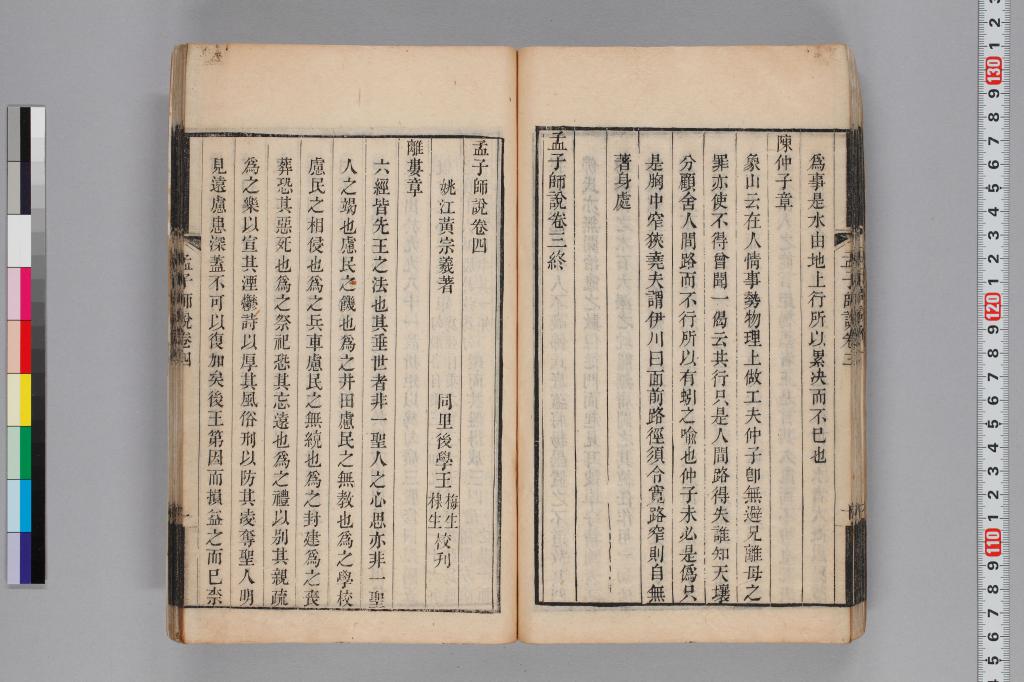 爲事是水由地上行所以累決而不已也
陳仲子章
象山云在人情事勢物理上做工夫仲子卽無避兄離母之
罪亦使不得曾聞一偈云共行只是人間路得失誰知天壤
分顧舍人間路而不行所以有蚓之喻也仲子未必是僞只
是胸中窄狹堯夫謂伊川曰面前路徑須令寬路窄則自無
著身處
孟子師說卷三終
孟子師說卷三
孟子師說卷四
姚江黃宗羲著 同里後學王
梅生
棣生
校刊
離婁章
六經皆先王之法也其垂世者非一聖人之心思亦非一聖
人之竭也慮民之饑也爲之井田慮民之無教也爲之學校
慮民之相侵也爲之兵車慮民之無統也爲之封建爲之喪
葬恐其惡死也爲之祭祀恐其忘遠也爲之禮以別其親疏
爲之樂以宣其湮鬱詩以厚其風俗刑以防其凌奪聖人明
見遠慮患深蓋不可以復加矣後王第因而損益之而已奈
孟子師說卷四
一
130
120
110